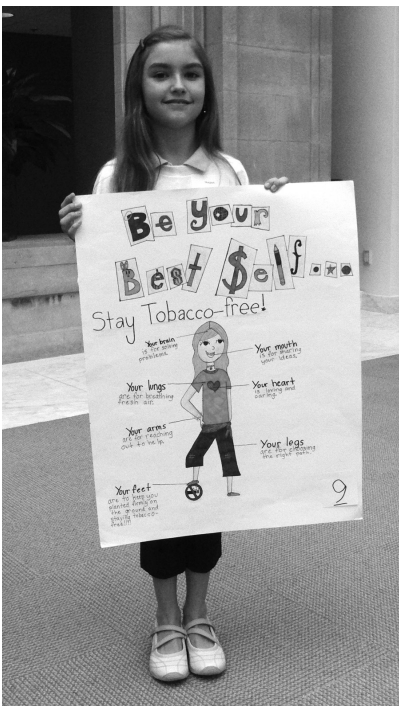 Be Your
Best $elf...
Stay Tobacco-free!
Your brain
is for solving
problems.
Your mouth
is for sharing
your ideas.
Your lungs
are for breathing
fresh air.
Your heart
is loving and
caring.
Your arms
are for reaching
out to help.
Your legs
are for choosing
the right path.
Your feet
are to keep you
planted firmly on
the ground and
staying tobacco-
free!!!
2